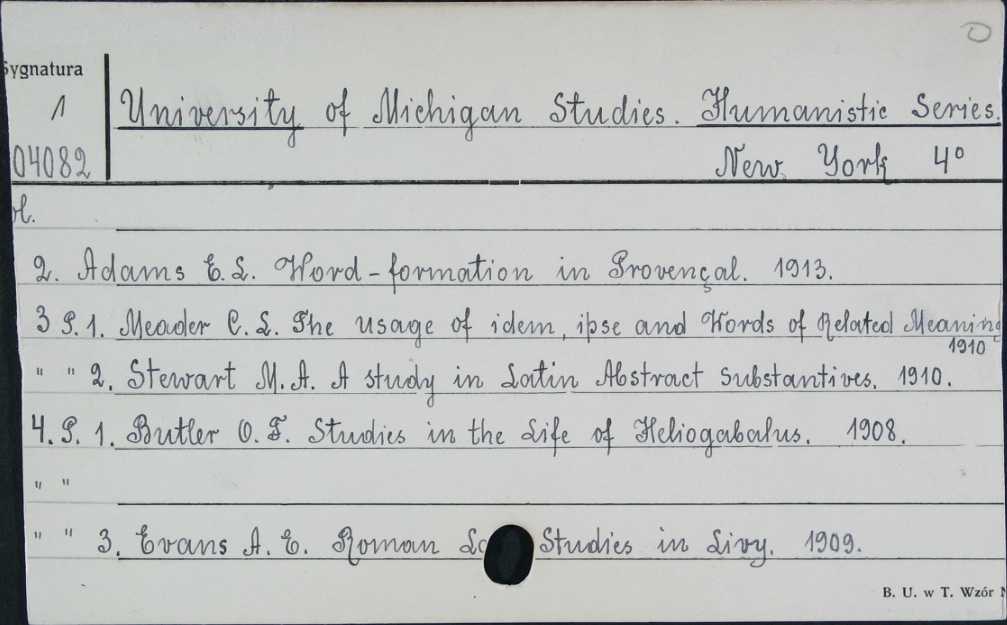 Sygnatura
1
04082
University of Michigan Studies. Humanistic Series.
New York 4°
ol.
2. Adams E. L. Word-formation in Provençal. 1913.
3 P. 1. Meader C. L. The usage of idem, ipse and Words of Related Meaning
1910
" " 2. Stewart M. A. A study in Latin Abstract Substantives. 1910.
4. P. 1. Butler O. F. Studies in the Life of Heliogabalus. 1908.
" "
" " 3. Evans A. E. Roman Studies in Livy. 1909.
B. U. w T. Wzór